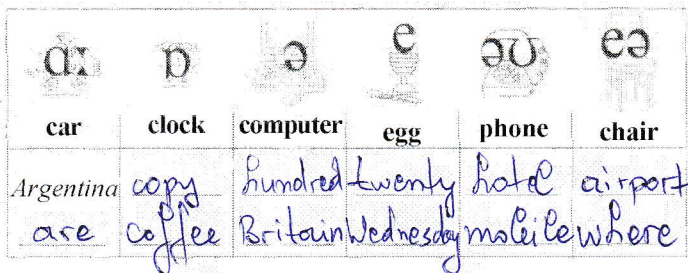 ɑː ɒ ə e əʊ eə
car clock computer egg phone chair
Argentina copy hundred twenty hotel airport
are coffee Britain Wednesday mobile where